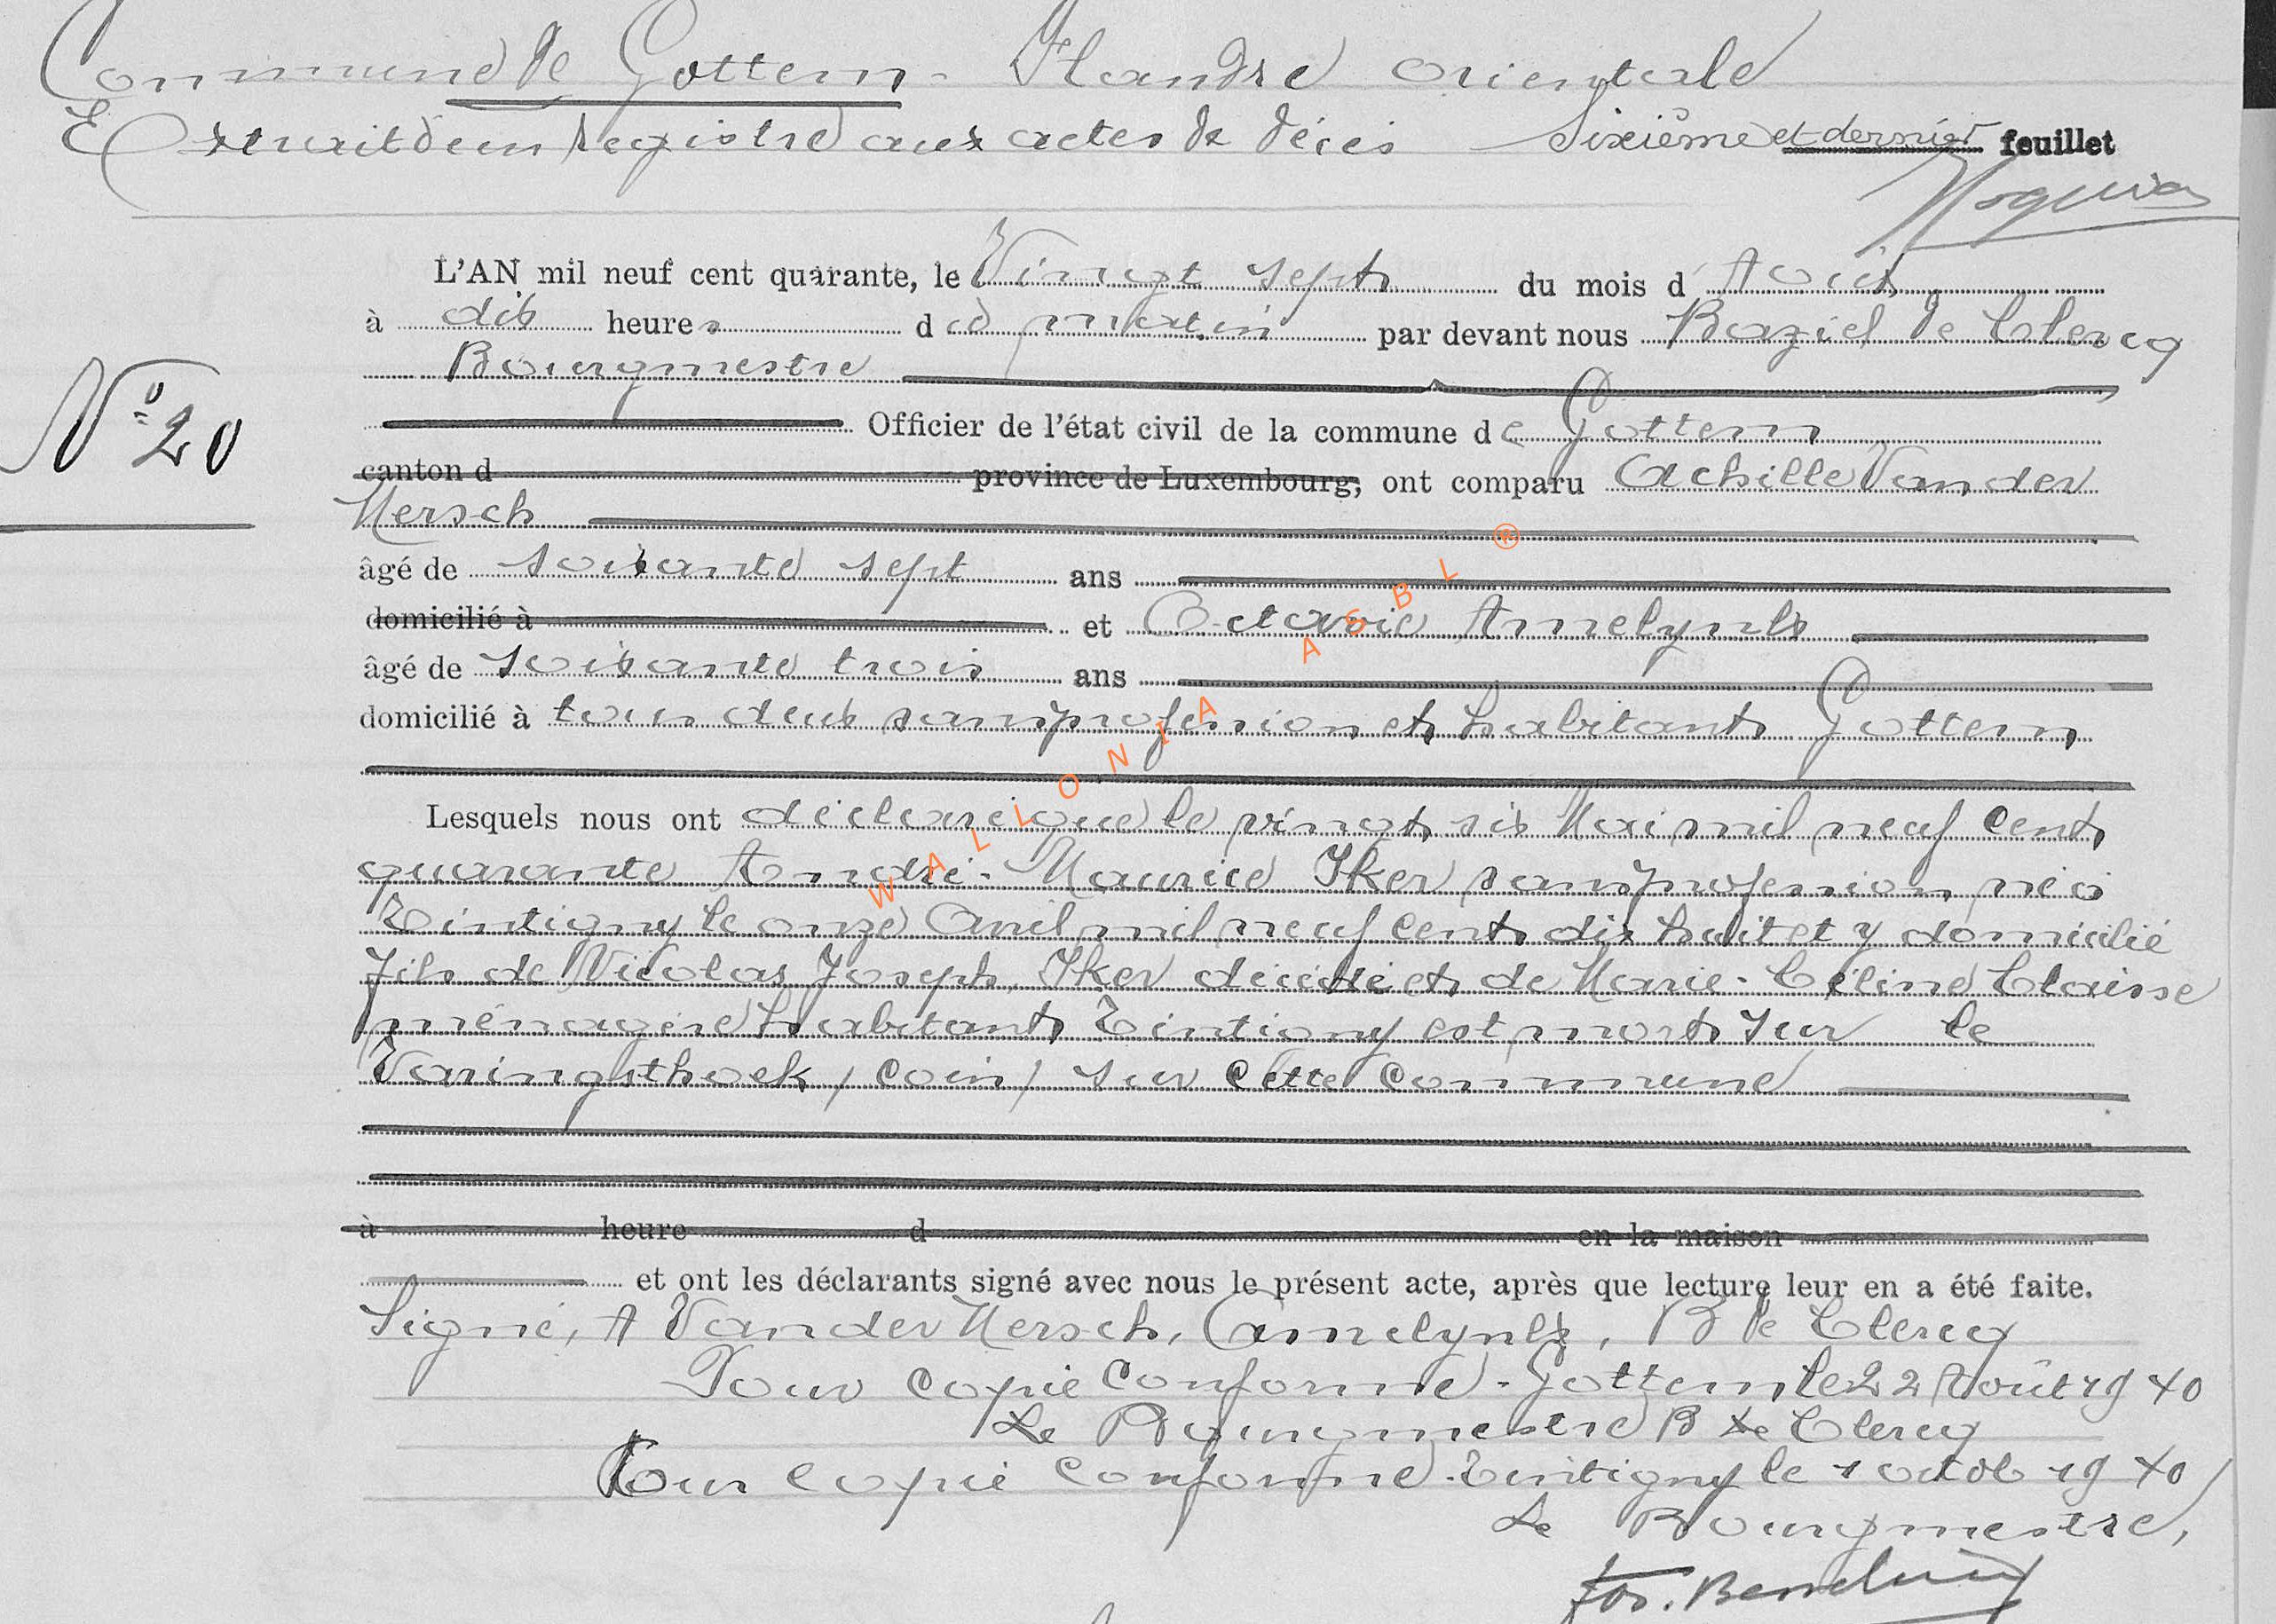 Commune de Gottem - Flandre orientale
Extrait d'un registre aux actes de décès Sixième et dernier feuillet
L'AN mil neuf cent quarante, le Vingt sept du mois d'Août
à dix heures du matin par devant nous Baziel De Clercq
Bourgmestre
N° 20
Officier de l'état civil de la commune de Gottem
canton d province de Luxembourg, ont comparu Achille Vander
Mersch
âgé de soixante sept ans
domicilié à et Octavie Amelynck
âgé de soixante trois ans
domicilié à tous deux sans profession et habitants Gottem
Lesquels nous ont déclaré que le vingt six Mai mil neuf cent
quarante André-Maurice Iker sans profession, né à
Tintigny le onze Avril mil neuf cent dix huit et y domicilié
fils de Nicolas Joseph Iker décédé et de Marie-Céline Claisse
ménagère habitant Tintigny est mort sur le
Varingsthoek /coin/ sur cette commune
à heure d en la maison
et ont les déclarants signé avec nous le présent acte, après que lecture leur en a été faite.
Signé, A Vander Mersch, O Amelynck, B De Clercq
Pour copie conforme - Gottem le 22 Août 1940
Le Bourgmestre B De Clercq
Pour copie conforme. Tintigny le 1 octob 1940
Le Bourgmestre,
Jos.
WALLONIA ASBL ®